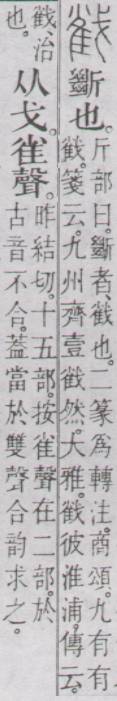 𢧵斷也。斤部曰。斷者、𢧵也。二篆為轉注。商頌。九有有
𢧵。箋云。九州齊壹𢧵然。大雅。𢧵彼淮浦。傳云。
𢧵、治
也。
从戈。雀聲。昨結切。十五部。按雀聲在二部。於
古音不合。葢當於雙聲合韵求之。